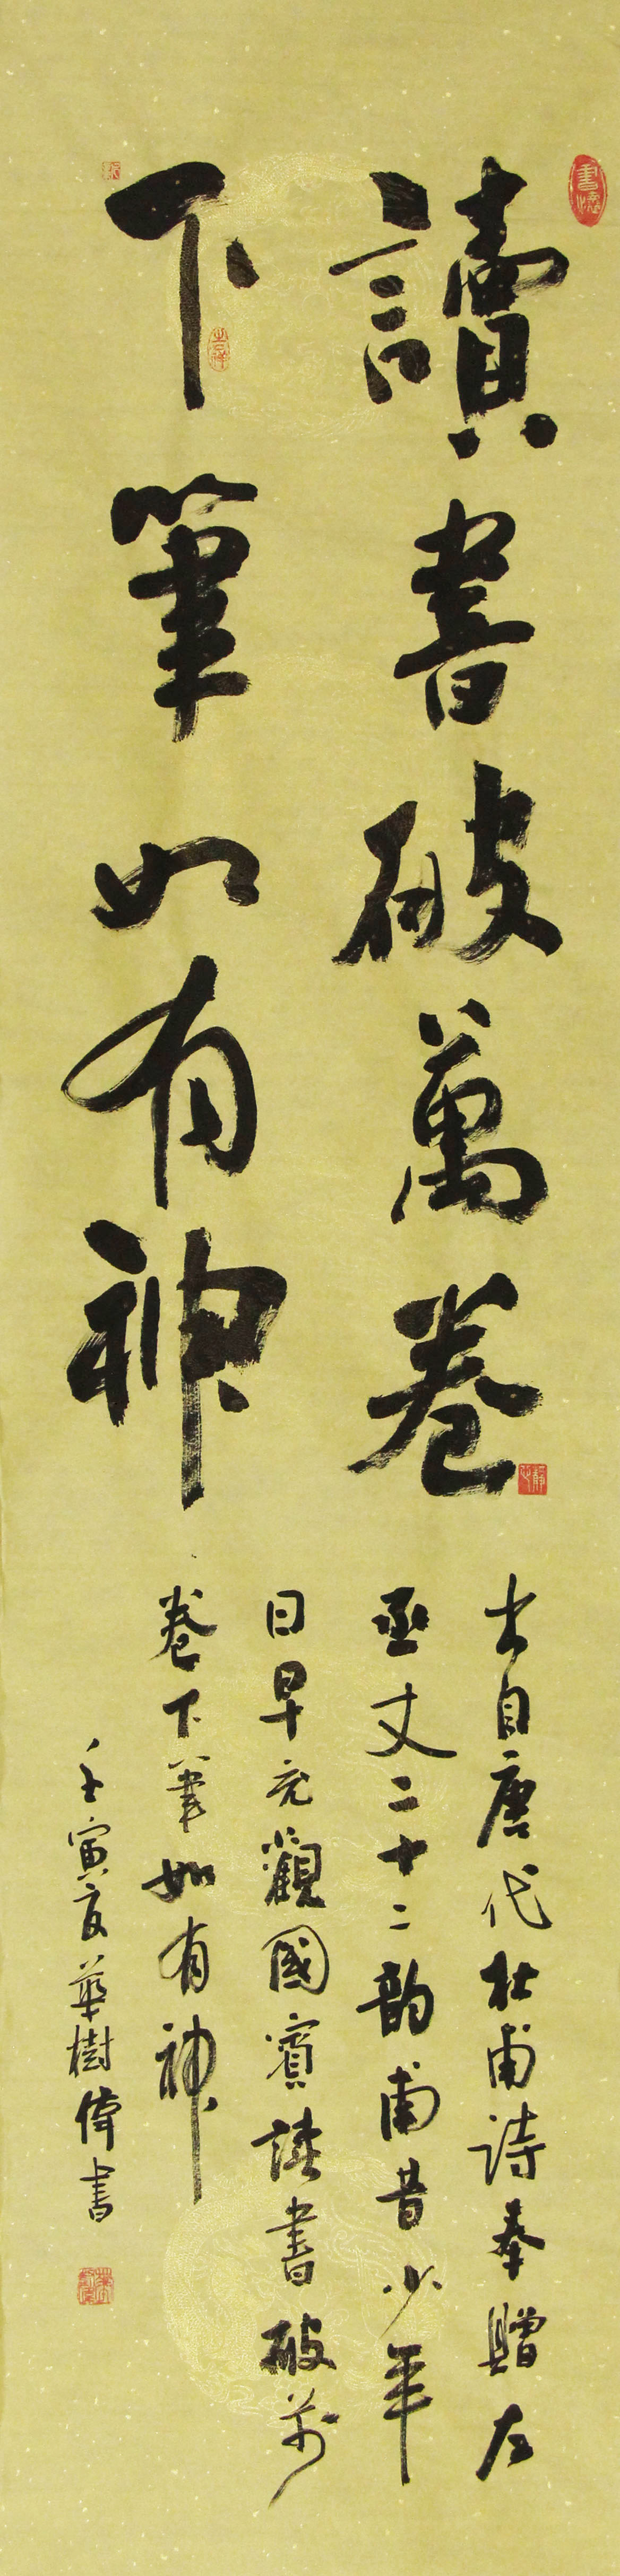 讀書破萬卷
下筆如有神
出自唐代杜甫詩奉贈左
丞丈二十二韵甫昔少年
日早充觀國賓讀書破万
卷下筆如有神
壬寅夏華樹偉書
吉祥